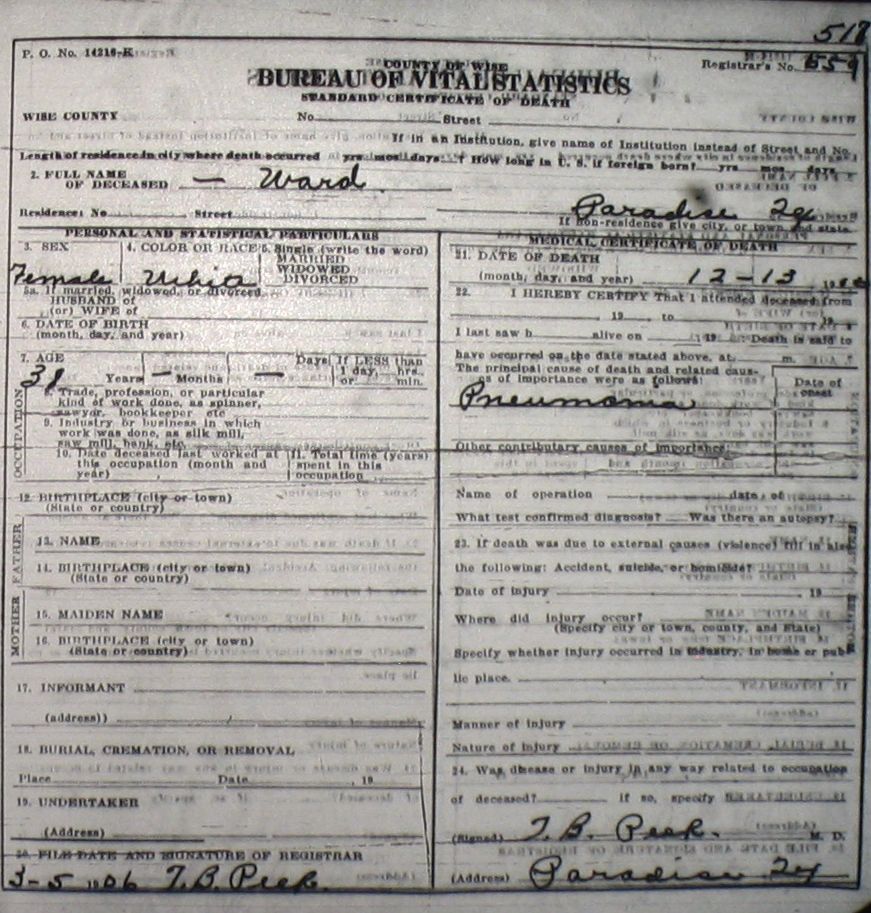 518
P. O. No. 14216-K
Registrar's No. 559
COUNTY OF WISE
BUREAU OF VITAL STATISTICS
STANDARD CERTIFICATE OF DEATH
WISE COUNTY No. Street
If in an Institution, give name of Institution instead of Street and No.
Length of residence in city where death occurred yrs. mos. days. How long in U. S. if foreign born? yrs mos. days
2. FULL NAME OF DECEASED — Ward
Residence: No Street Paradise
If Non-residence give city, or town and state.
PERSONAL AND STATISTICAL PARTICULARS
3. SEX
Female
4. COLOR OR RACE
White
5. Single (write the word)
MARRIED
WIDOWED
DIVORCED
5a. If married, widowed, or divorced
HUSBAND of
(or) WIFE of
6. DATE OF BIRTH
(month, day, and year)
7. AGE
38 Years — Months — Days
If LESS than
1 day, hrs.
or min.
OCCUPATION
8. Trade, profession, or particular
kind of work done, as spinner,
sawyor, bookkeeper etc
9. Industry or business in which
work was done, as silk mill,
saw mill, bank, etc
10. Date deceased last worked at
this occupation (month and
year)
11. Total time (years)
spent in this
occupation
12. BIRTHPLACE (city or town)
(State or country)
FATHER
13. NAME
14. BIRTHPLACE (city or town)
(State or country)
MOTHER
15. MAIDEN NAME
16. BIRTHPLACE (city or town)
(State or country)
17. INFORMANT
(address))
18. BURIAL, CREMATION, OR REMOVAL
Place Date , 19
19. UNDERTAKER
(Address)
20. FILE DATE AND SIGNATURE OF REGISTRAR
3-5 1906 T. B. Peek.
MEDICAL CERTIFICATE OF DEATH
21. DATE OF DEATH
(month, day, and year) 12-13
22. I HEREBY CERTIFY That I attended deceased from
, 19 to , 19
I last saw h alive on , 19 Death is said to
have occurred on the date stated above, at m.
The principal cause of death and related causes
of importance were as follows:
Date of
onset
Pneumonia
Other contributary causes of importance:
Name of operation date of
What test confirmed diagnosis? Was there an autopsy?
23. If death was due to external causes (violence) fill in also
the following: Accident, suicide, or homiside?
Date of injury , 19
Where did injury occur?
(Specify city or town, county, and State)
Specify whether injury occurred in industry, in home or pub
lic place.
Manner of injury
Nature of injury
24. Was disease or injury in any way related to occupation
of deceased? if so, specify
(Signed) T. B. Peek. M. D.
(Address) Paradise